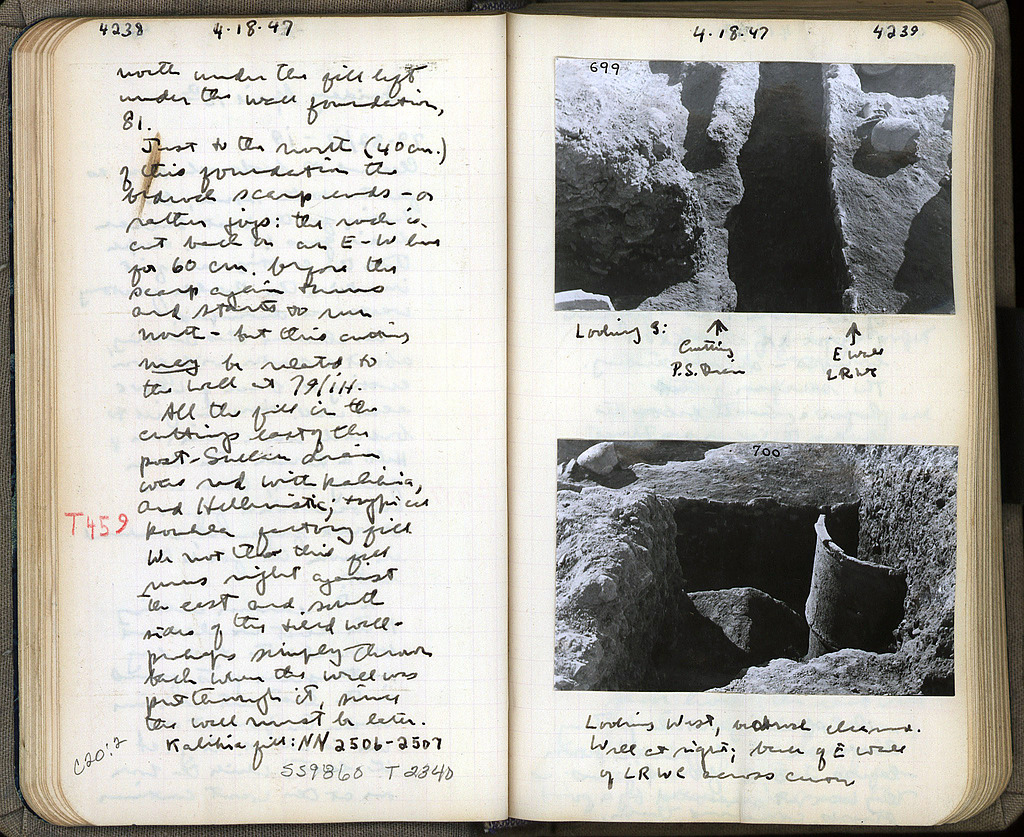 4238 4·18·47
north under the fill left
under the wall foundation,
81.
Just to the north (40 cm.)
of this foundation the
bedrock scarp ends – or
rather jogs: the rock is
cut back on an E–W line
for 60 cm. before the
scarp again turns
and starts to run
north – but this cutting
may be related to
the well at 79/ΙΗ.
All the fill in the
cuttings east of the
post-Sullan drain
was red with kalibia,
and Hellenistic; typical
factory fill
T459
We note that this fill
runs right against
the east and south
sides of the tiled well –
perhaps simply thrown
back when the well was
put through it, since
the well must be later.
Kalibia fill: NN 2506–2507
C20:2
SS9860 T 2340
4·18·47 4239
699
Looking S: ↑ ↑
Cutting
P.S. Drain
E wall
LRWC
700
Looking West, bedrock cleared.
Well at right; back of E wall
of LRWC across